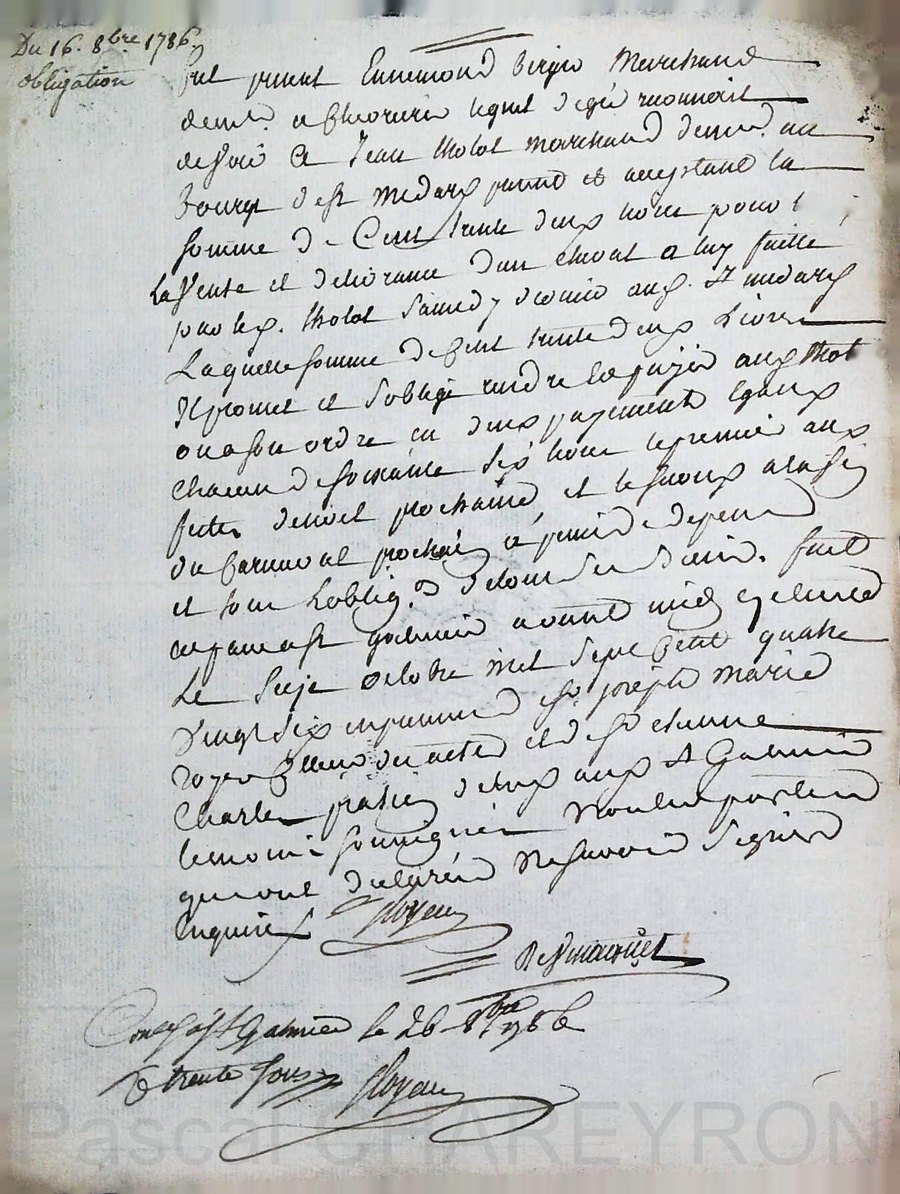 Du 16. 8bre 1786
obligation
fut present Ennemond Marchand
demt. a lequel de gré reconnoit
devoir a Jean tholot marchand demt. au
bourg de st medard present et acceptant la
somme de Cent trente deux livres pour
La Vente et delivrance d'un cheval a luy faitte
par led. tholot samedy dernier aud. st medard
Laquelle somme de Cent trente deux Livres
Il promet et s'oblige rendre et payer aud tholot
ou a son ordre en deux payements egaux
chacun de soixante six livres le premier aux
fetes de noel prochaine, et le second a la fin
du Carnaval prochain a peine de depens
et sous L'oblig.on de tous ses biens. fait
et passé a st galmier avant midy
Le seize octobre mil sept Cent quatre
vingt six en presence de sr. joseph marie
royer et de sr etienne
Charles praticien aud st Galmier
temoins soussignés non les parties
qui ont declaré ne savoir signer
enquis
Royer
Desmaruet
Con.lé a st Galmier le 26 8bre 1786
R trente sous Royer
Pascal CHAREYRON